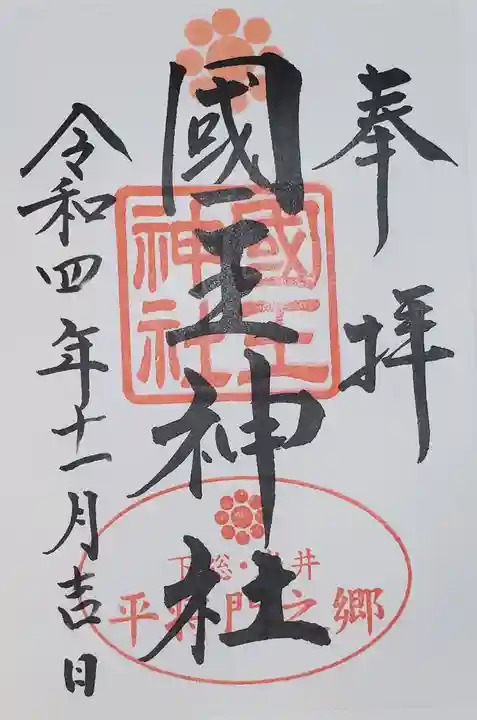 奉拝
國王神社
國王
神社
下総・井
平将門之郷
令和四年十一月吉日